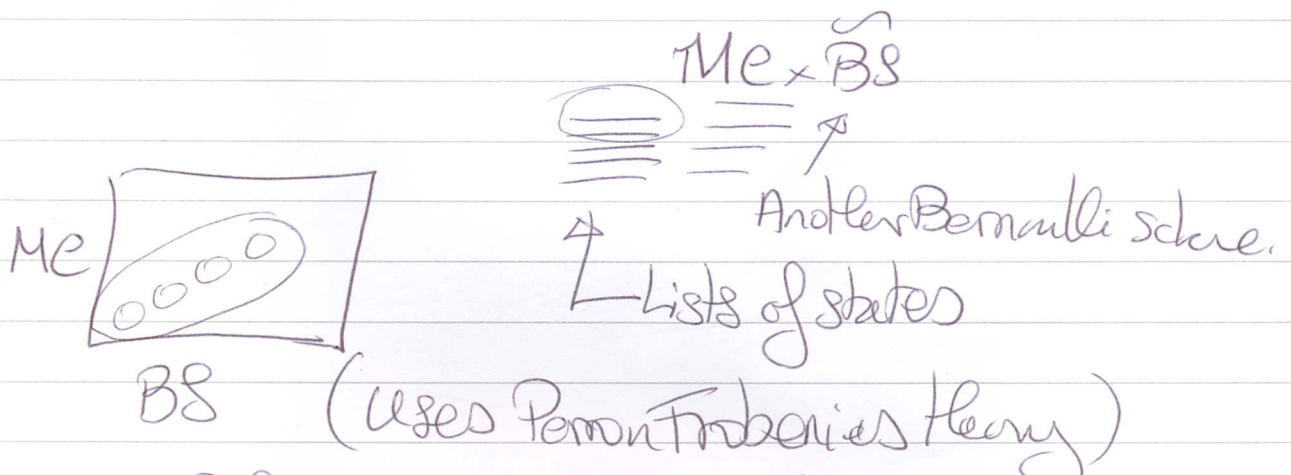 Me × B̃S
Another Bernoulli scheme.
Me
Lists of states
BS (Uses Perron Frobenius theory)